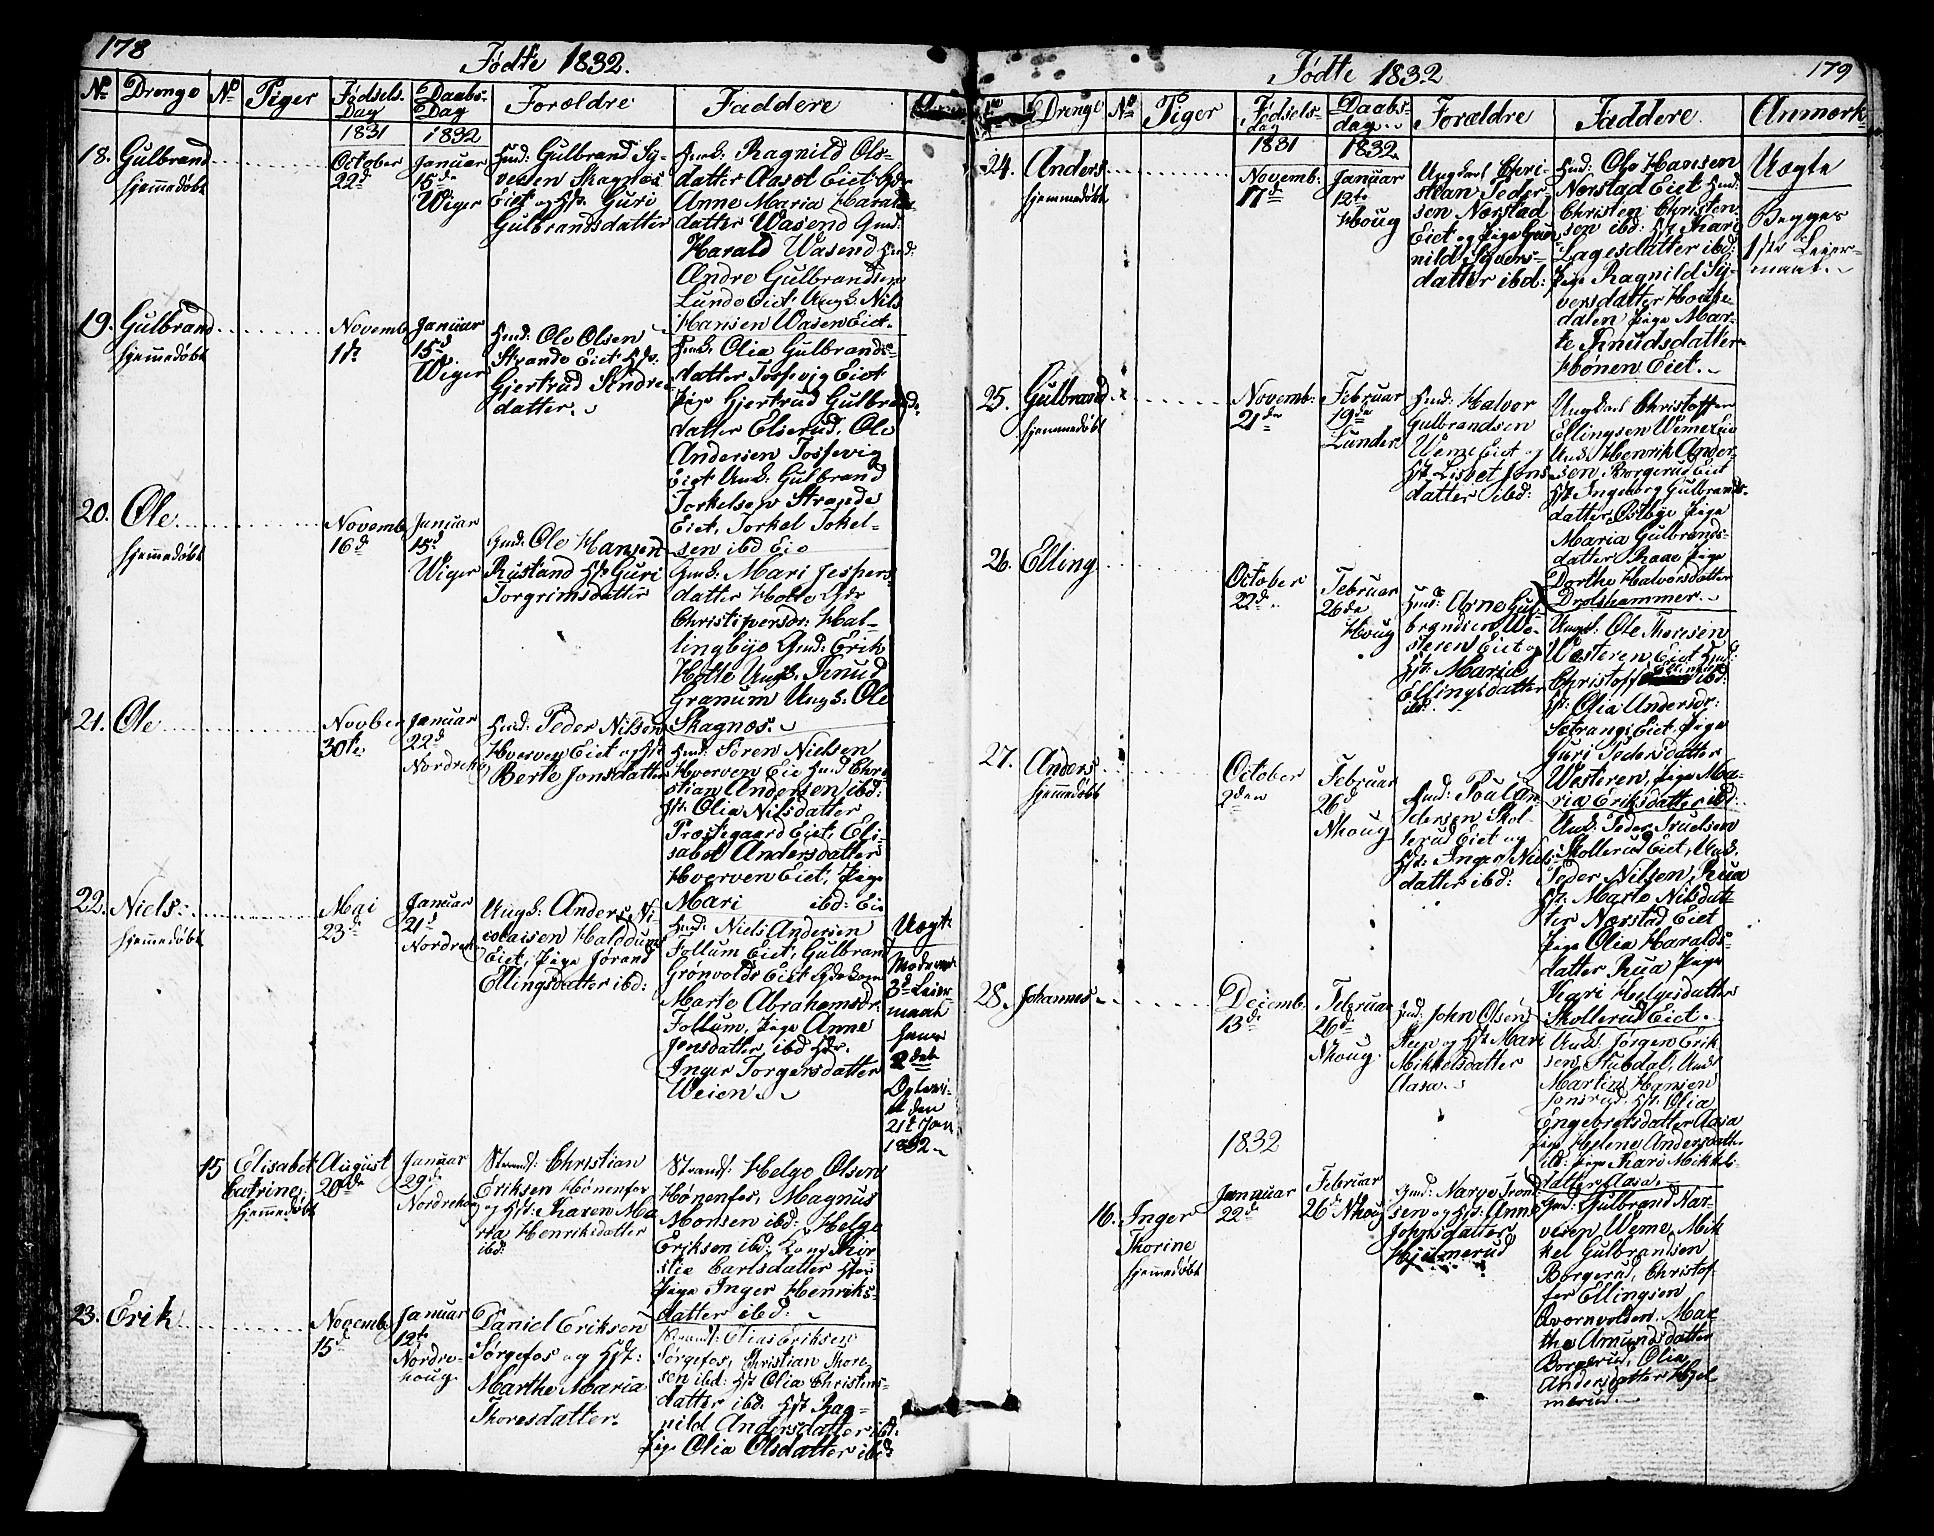 178
Födte 1832.
No Drenge No Piger Födsels-Dag Daabs-Dag Forældre Faddere
1831 1832
18. Gulbrand hjemmedöbt
October 22d
Januar 15de Wiger
Gmd: Gulbrand Sy-
versen Skagnæs
Eiet og Hst. Guri
Gulbrandsdatter
Ragnild Ols-
datter Aasot Eiet
Anne Maria Haralds-
datter Wasend Gmd:
Harald Wasend Hmd:
Andre Gulbrandsen
Lunde Eiet Ungk. Nils
Hansen Wasen Eiet.
19. Gulbrand hjemmedöbt
Novemb. 1ste
Januar 15d Wiger
Hmd: Ole Olsen
Strande Eiet
Gjertrud Andre-
datter.
Olia Gulbrands-
datter Tossevig Eiet
Pige Gjertrud Gulbrands-
datter Elserud, Ole
Andersen Tossevig
Eiet Ungk: Gulbrand
Torkelsen Strande
Eiet, Torkel Tokel-
sen ibd Eie
20. Ole hjemmedöbt
Novemb 16d
Januar 15d Wiger
Gmd: Ole Hansen
Rustand Hst Guri
Torgrimsdatter
Mari Jespers-
datter Holte
Christipersdr. Hal-
lingbye Gmd: Erik
Holte Ungk. Knud
Granum Ungk: Ole
Skagnæs.
21. Ole
Novber 30te
Januar 22d Nordreho
Hmd: Peder Nilsen
Hverven Eiet og Hst
Berte Jonsdatter
Hmd: Sören Nielsen
Hverven Eie Hmd Chri-
stian Andersen ibd:
Hst: Olia Nilsdatter
Præstegaard Eiet, Eli-
sabet Andersdatter
Hverven Eiet, Pige
Mari ibd: Eie
22. Niels hjemmedöbt
Mai 23d
Januar 21d Nordreh
Ungk: Anders Ni-
colaisen Halddums
Eiet, Pige Jörand
Ellingsdatter ibd:
Hmd: Niels Andersen
Follum Eiet, Gulbrand
Grönvolds Eiet
Marte Abrahamsdr.
Follum, Pige Anne
Jonsdatter ibd
Inger Torgersdatter
Weien.
Uægt:
Moderens
3d Leier-
maal
21de Jan
1832
15 Elisabet Catrine hjemmedöbt
August 20de
Januar 29d Nordrehoug
Strands: Christian
Eriksen Hönenfos
og Hst: Karen Ma-
ria Henriksdatter
ibd:
Strands: Helge Olsen
Hönenfos, Magnus
Monsen ibd: Helge
Eriksen ibd, Kone Kir-
stie Carlsdatter
Pige Inger Henriks-
datter ibd:
23. Erik
Novemb 15d
Januar 12te Nordre-
houg
Daniel Eriksen
Sörgefos og Hst:
Marthe Maria
Thoresdatter.
Elias Eriksen
Sörgefos, Christian Thore-
sen ibd: Hst Olia Christens-
datter ibd. Hst Rag-
nild Andersdatter ibd.
Pige Olia Olsdatter ibd
179
Födte 1832
Drenge No Piger Födsels-dag Daabs-dag Forældre Faddere Anmerk
1831 1832
24. Anders hjemmedöbt
Novemb: 17de
Januar 12te Houg
Ungkarl Chri-
stian Peder-
sen Norstad
Eiet og Pige Gun-
nild Syvers-
datter ibd:
Hmd: Ole Hansen
Norstad Eiet Hmd:
Christen Christen-
sen ibd: Hst Kari
Lagesdatter ibd:
Pige Ragnild Sy-
versdatter
dalen Pige Mar-
te Knudsdatter
Hönen Eiet.
Uægte
Begges
1ste Leier-
maal.
25. Gulbrand hjemmedöbt
Novemb: 21de
Februar 19de Lunder
Hmd: Halvor
Gulbrandsen
Weme Eiet og
Hst Lisbet Jons-
datter ibd:
Ungkarl Christoffer
Ellingsen Wemerua
Ungk. Henrik Ander-
sen, Borgerud Eiet
Hst Ingeborg Gulbrands-
datter Östbye Pige
Maria Gulbrands-
datter Raae Pige
Dorthe Halvorsdatter
Drolshammer.
26. Elling
October 22de
Februar 26de Houg
Hmd: Arne Gul-
brandsen We-
steren Eiet og
Hst: Maria
Ellingsdatter
ibd.
Ungk: Ole Thoresen
Westeren Eiet Hmd:
Christoff Ellingsen ibd:
Hst: Olia Andersdr:
Sætrang: Eiet Pige
Guri Pedersdatter
Westeren, Pige Ma-
ria Eriksdatter ibd:
27. Anders hjemmedöbt
October 2den
Februar 26d Nhoug
Hmd: Poul An-
dersen Skol-
lerud Eiet og
Hst: Inger Niels-
datter ibd:
Ungk: Peder Truelsen
Skollerud Eiet, Ungk.
Peder Nilsen, Rua
Hst: Marte Nilsdat-
ter Norstad Eiet
Pige Olia Haralds-
datter Rua Pige
Kari Helgesdatter
Skollerud Eiet.
28. Johannes
Decemb. 13de
Februar 26d Nhoug.
Hmd: John Olsen
og Hst Mari
Mikkelsdatter
Aasa.
Ungk: Jörgen Erik-
sen Stubdal, Ungk
Martin Hansen
Hst. Olia
Engebretsdatter Aasa
Pige Helene Andersdatt.
ibd: Pige Kari Mikkels-
datter Aasa.
1832
16. Inger Thorine hjemmedöbt
Januar 22de
Februar 26d Nhoug
Gmd: Narve Trond-
sen og Hst: Anne
Johnsdatter
Hjelmerud
Gmd: Gulbrand Nar-
vesen Weme, Mik-
kel Gulbrandsen
Borgerud, Christof-
fer Ellingsen
Qvernvolden, Mar-
the Amundsdatter
Borgerud, Olia
Andersdatter Hjel-
merud.